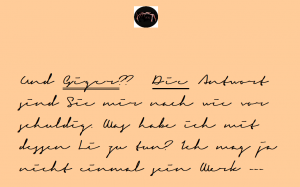 Und Giger?? Die Antwort
sind Sie mir nach wie vor
schuldig. Was habe ich mit
dessen Li zu tun? Ich mag ja
nicht einmal sein Werk ---